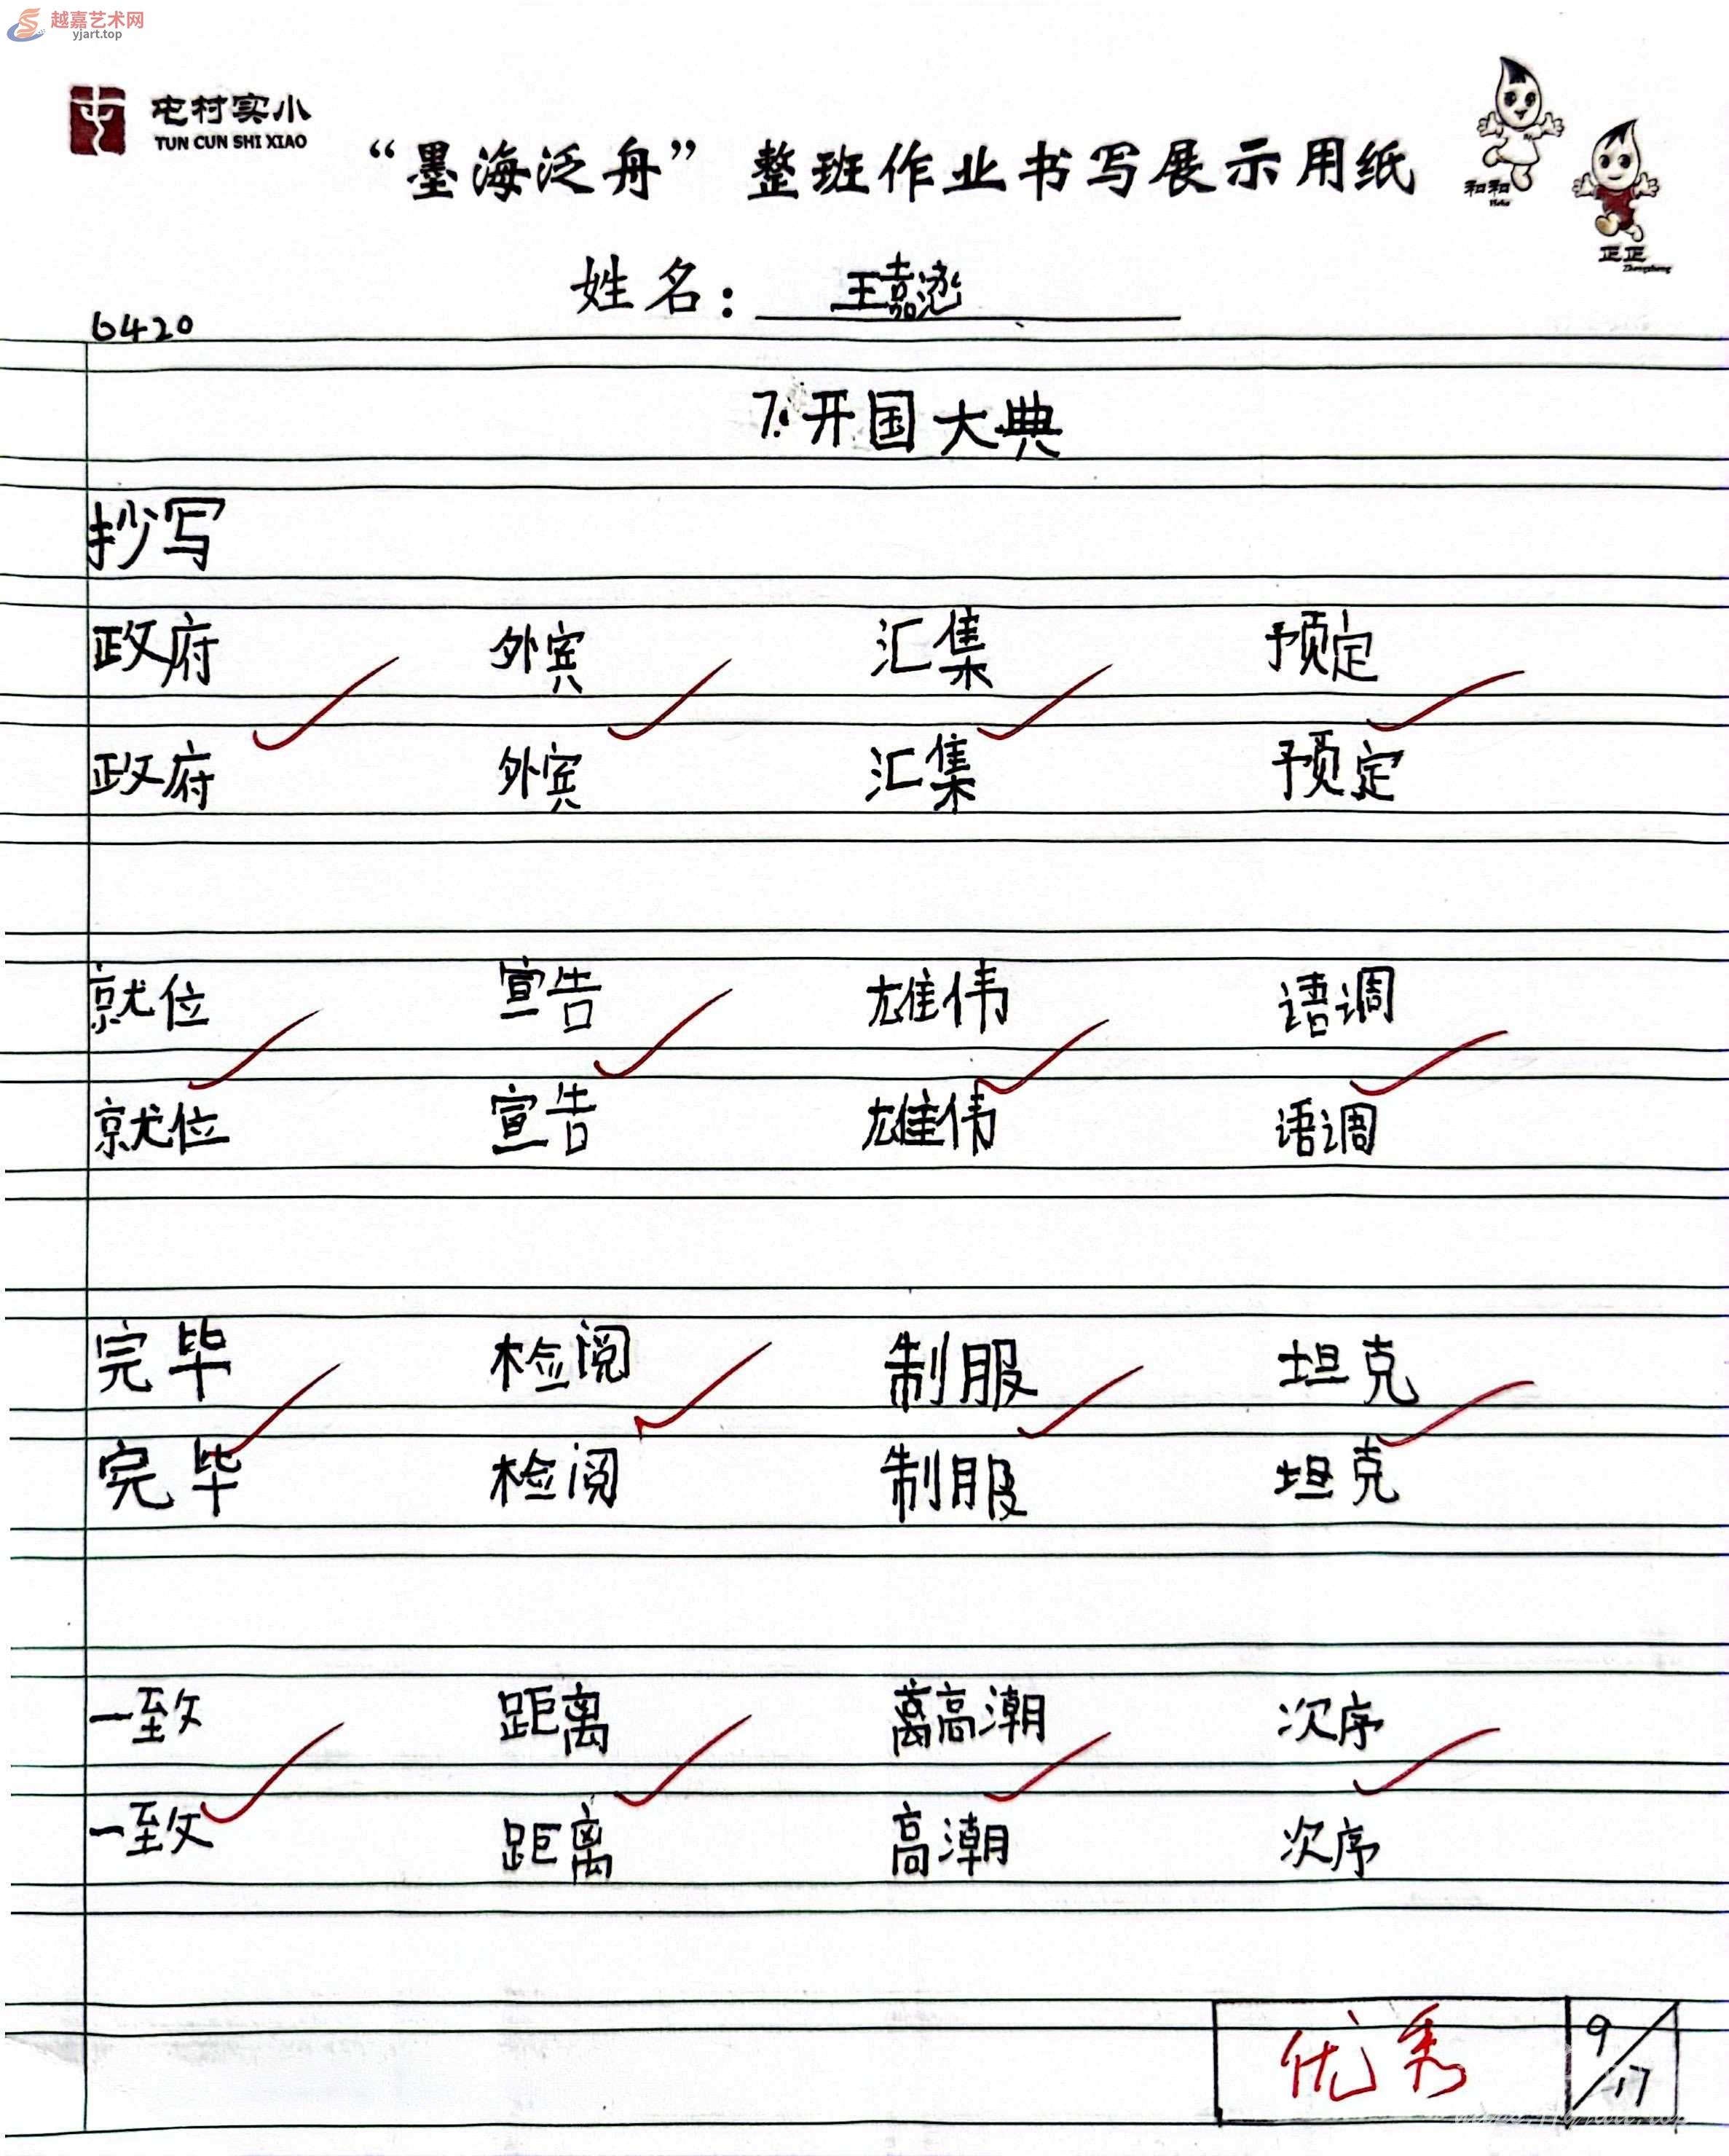 越嘉艺术网
yjart.top
屯村实小
TUN CUN SHI XIAO
“墨海泛舟” 整班作业书写展示用纸
和和
Hehe
正正
Zhengzheng
姓名：王嘉滺
6420
7.开国大典
抄写
政府 外宾 汇集 预定
政府 外宾 汇集 预定
就位 宣告 雄伟 语调
就位 宣告 雄伟 语调
完毕 检阅 制服 坦克
完毕 检阅 制服 坦克
一致 距离 离高潮 次序
一致 距离 高潮 次序
优秀 9/17